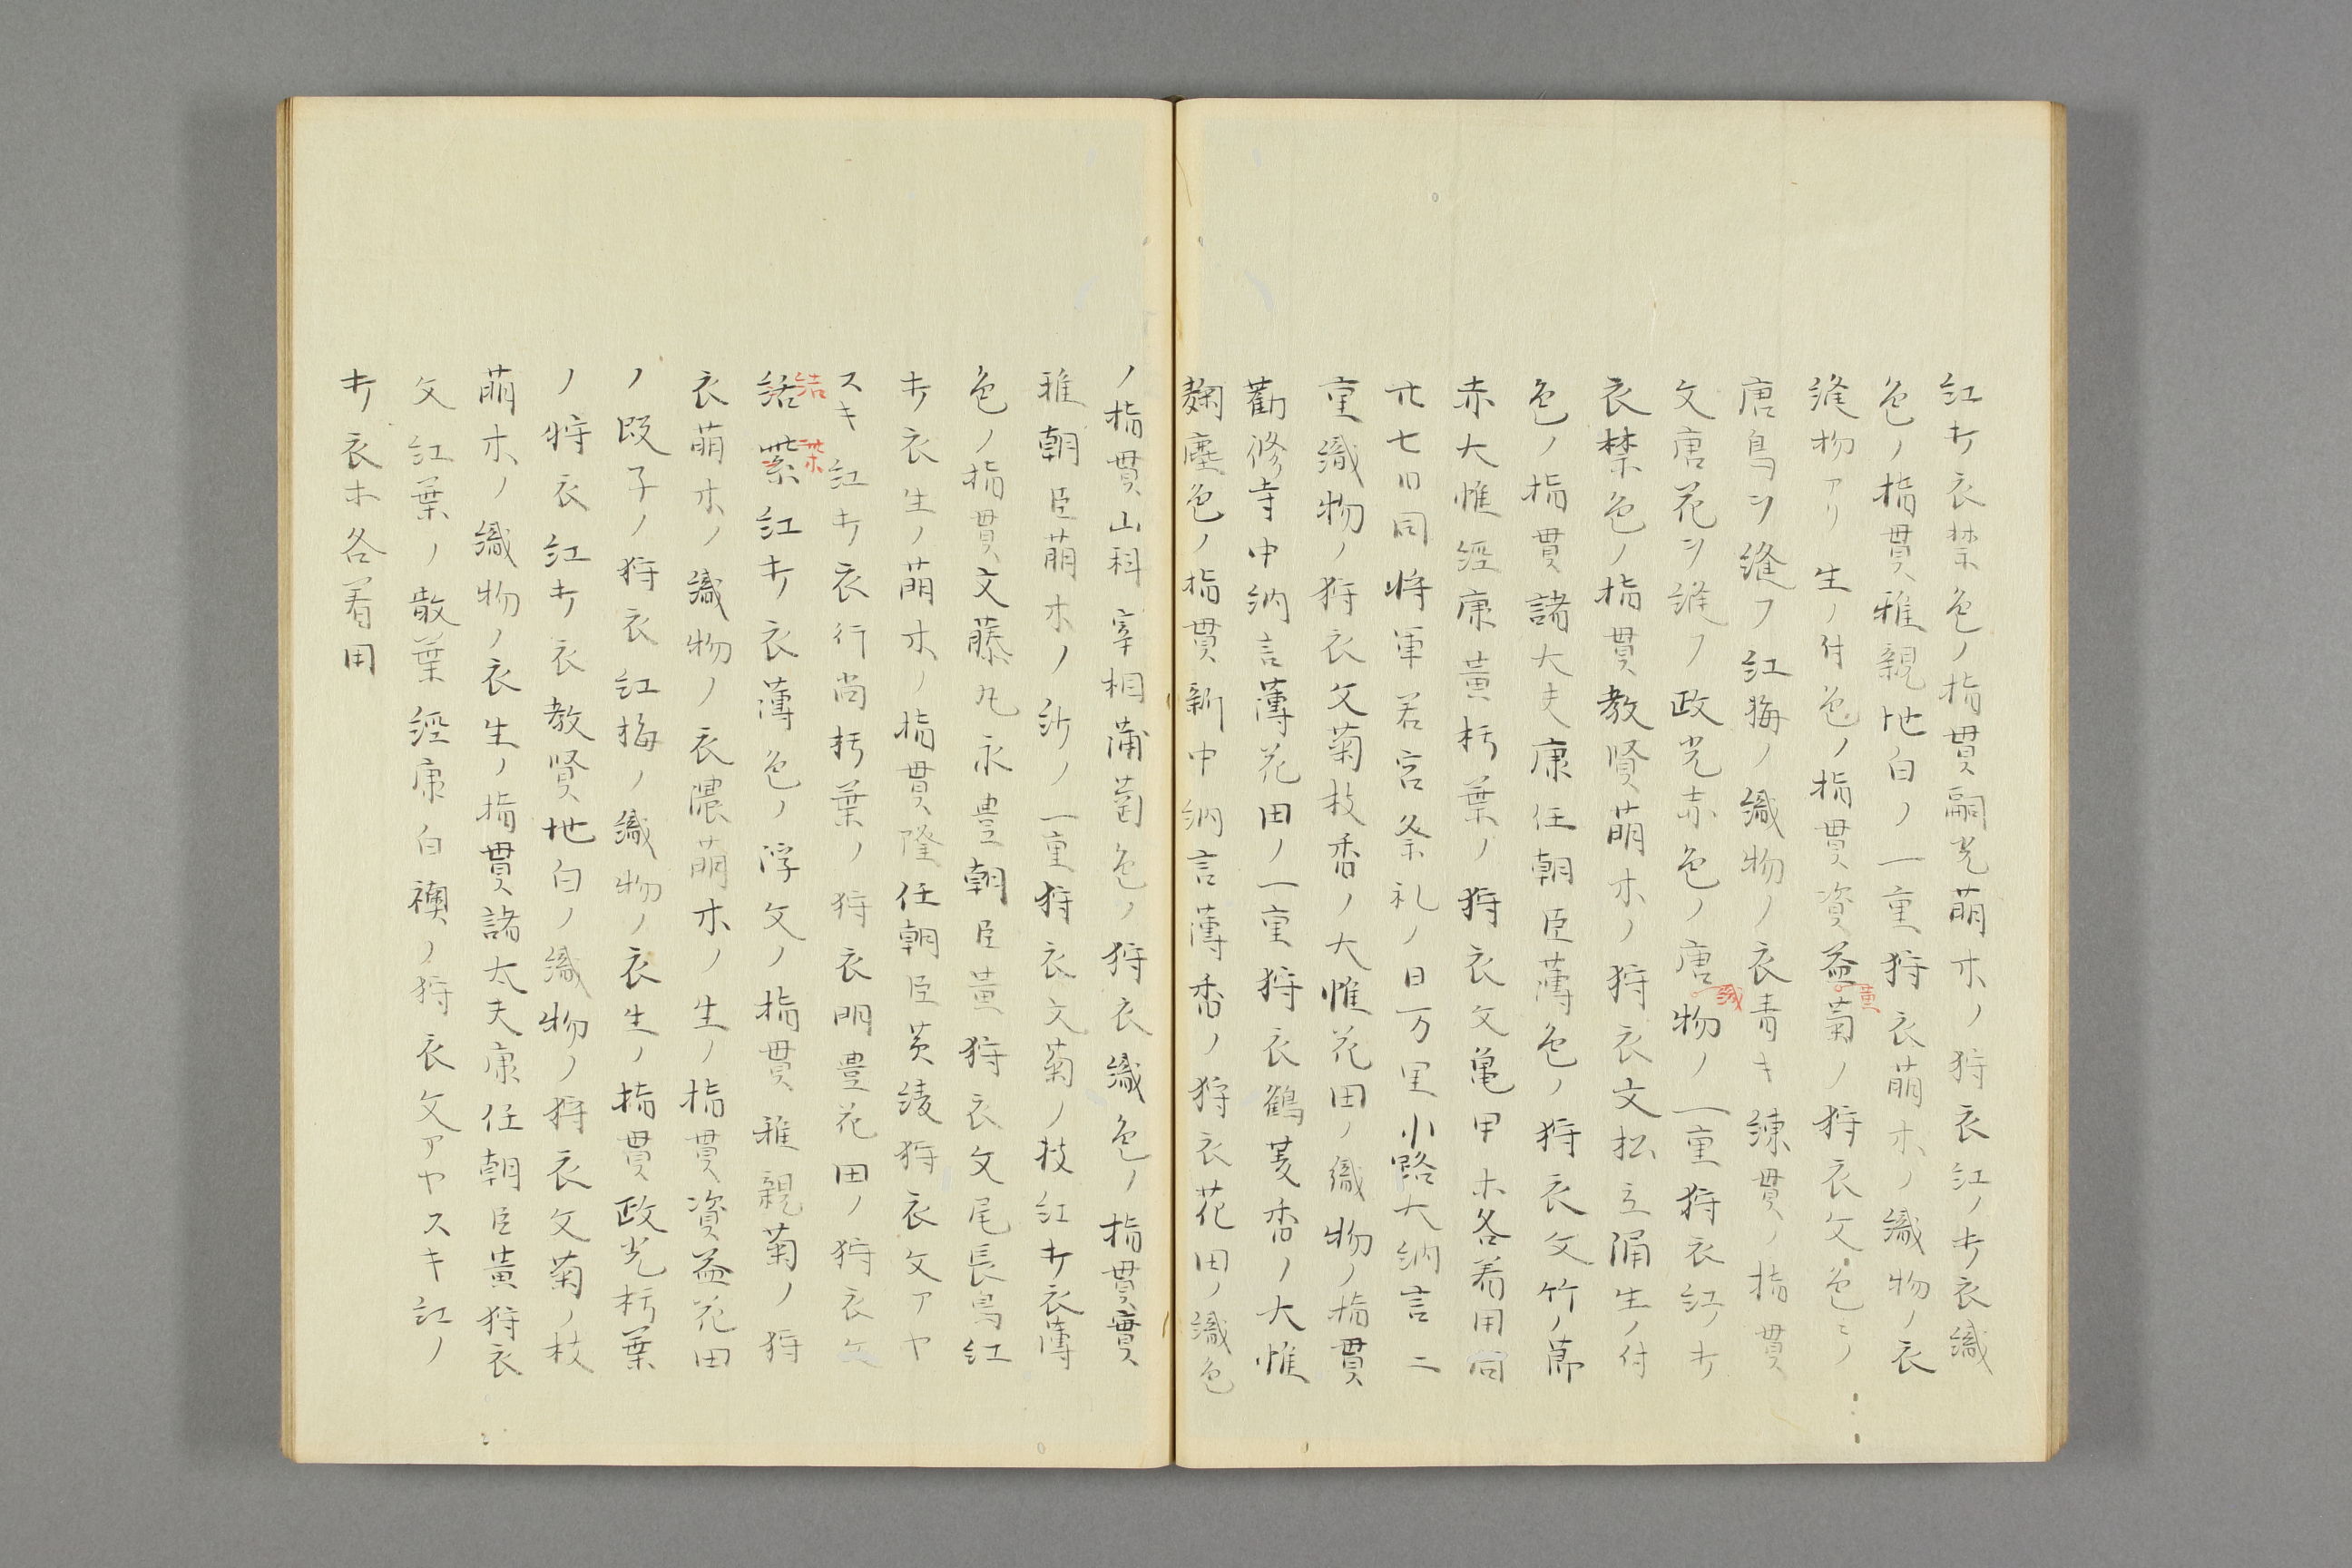 紅キ衣禁色ノ指貫嗣光萠木ノ狩衣江ノキ衣織
色ノ指貫雅親地白ノ一重狩衣萠木ノ織物ノ衣
縫物アリ生ノ付色ノ指貫資益菊ノ狩衣文色ミノ
黄
唐鳥ヲ縫フ紅梅ノ織物ノ衣青キ練貫ノ指貫
文唐花ヲ縫フ政光赤色ノ唐物ノ一重狩衣江ノキ
織
衣禁色ノ指貫教賢萠木ノ狩衣文松立涌生ノ付
色ノ指貫諸大夫康任朝臣薄色ノ狩衣文竹ノ節
赤大帷経康黄朽葉ノ狩衣文亀甲木各着用同
廿七日同将軍若宮祭礼ノ日万里小路大納言二
重織物ノ狩衣文菊枝香ノ大帷花田ノ織物ノ指貫
勸修寺中納言薄花田ノ一重狩衣鶴菱香ノ大帷
麹塵色ノ指貫新中納言薄香ノ狩衣花田ノ織色
ノ指貫山科宰相蒲萄色ノ狩衣織色ノ指貫實
雅朝臣萠木ノ紗ノ一重狩衣文菊ノ枝紅キ衣薄
色ノ指貫文藤丸永豊朝臣黄狩衣文尾長鳥紅
キ衣生ノ萠木ノ指貫隆任朝臣黄綾狩衣文アヤ
スキ江キ衣行尚朽葉ノ狩衣明豊花田ノ狩衣文
結 葉
紅キ衣薄色ノ浮文ノ指貫雅親菊ノ狩
衣萠木ノ織物ノ衣濃萠木ノ生ノ指貫資益花田
ノ段子ノ狩衣紅梅ノ織物ノ衣生ノ指貫政光朽葉
ノ狩衣紅キ衣教賢地白ノ織物ノ狩衣文菊ノ枝
萠木ノ織物ノ衣生ノ指貫諸太夫康任朝臣黄狩衣
文紅葉ノ散葉経康白襖ノ狩衣文アヤスキ江ノ
キ衣木各着用